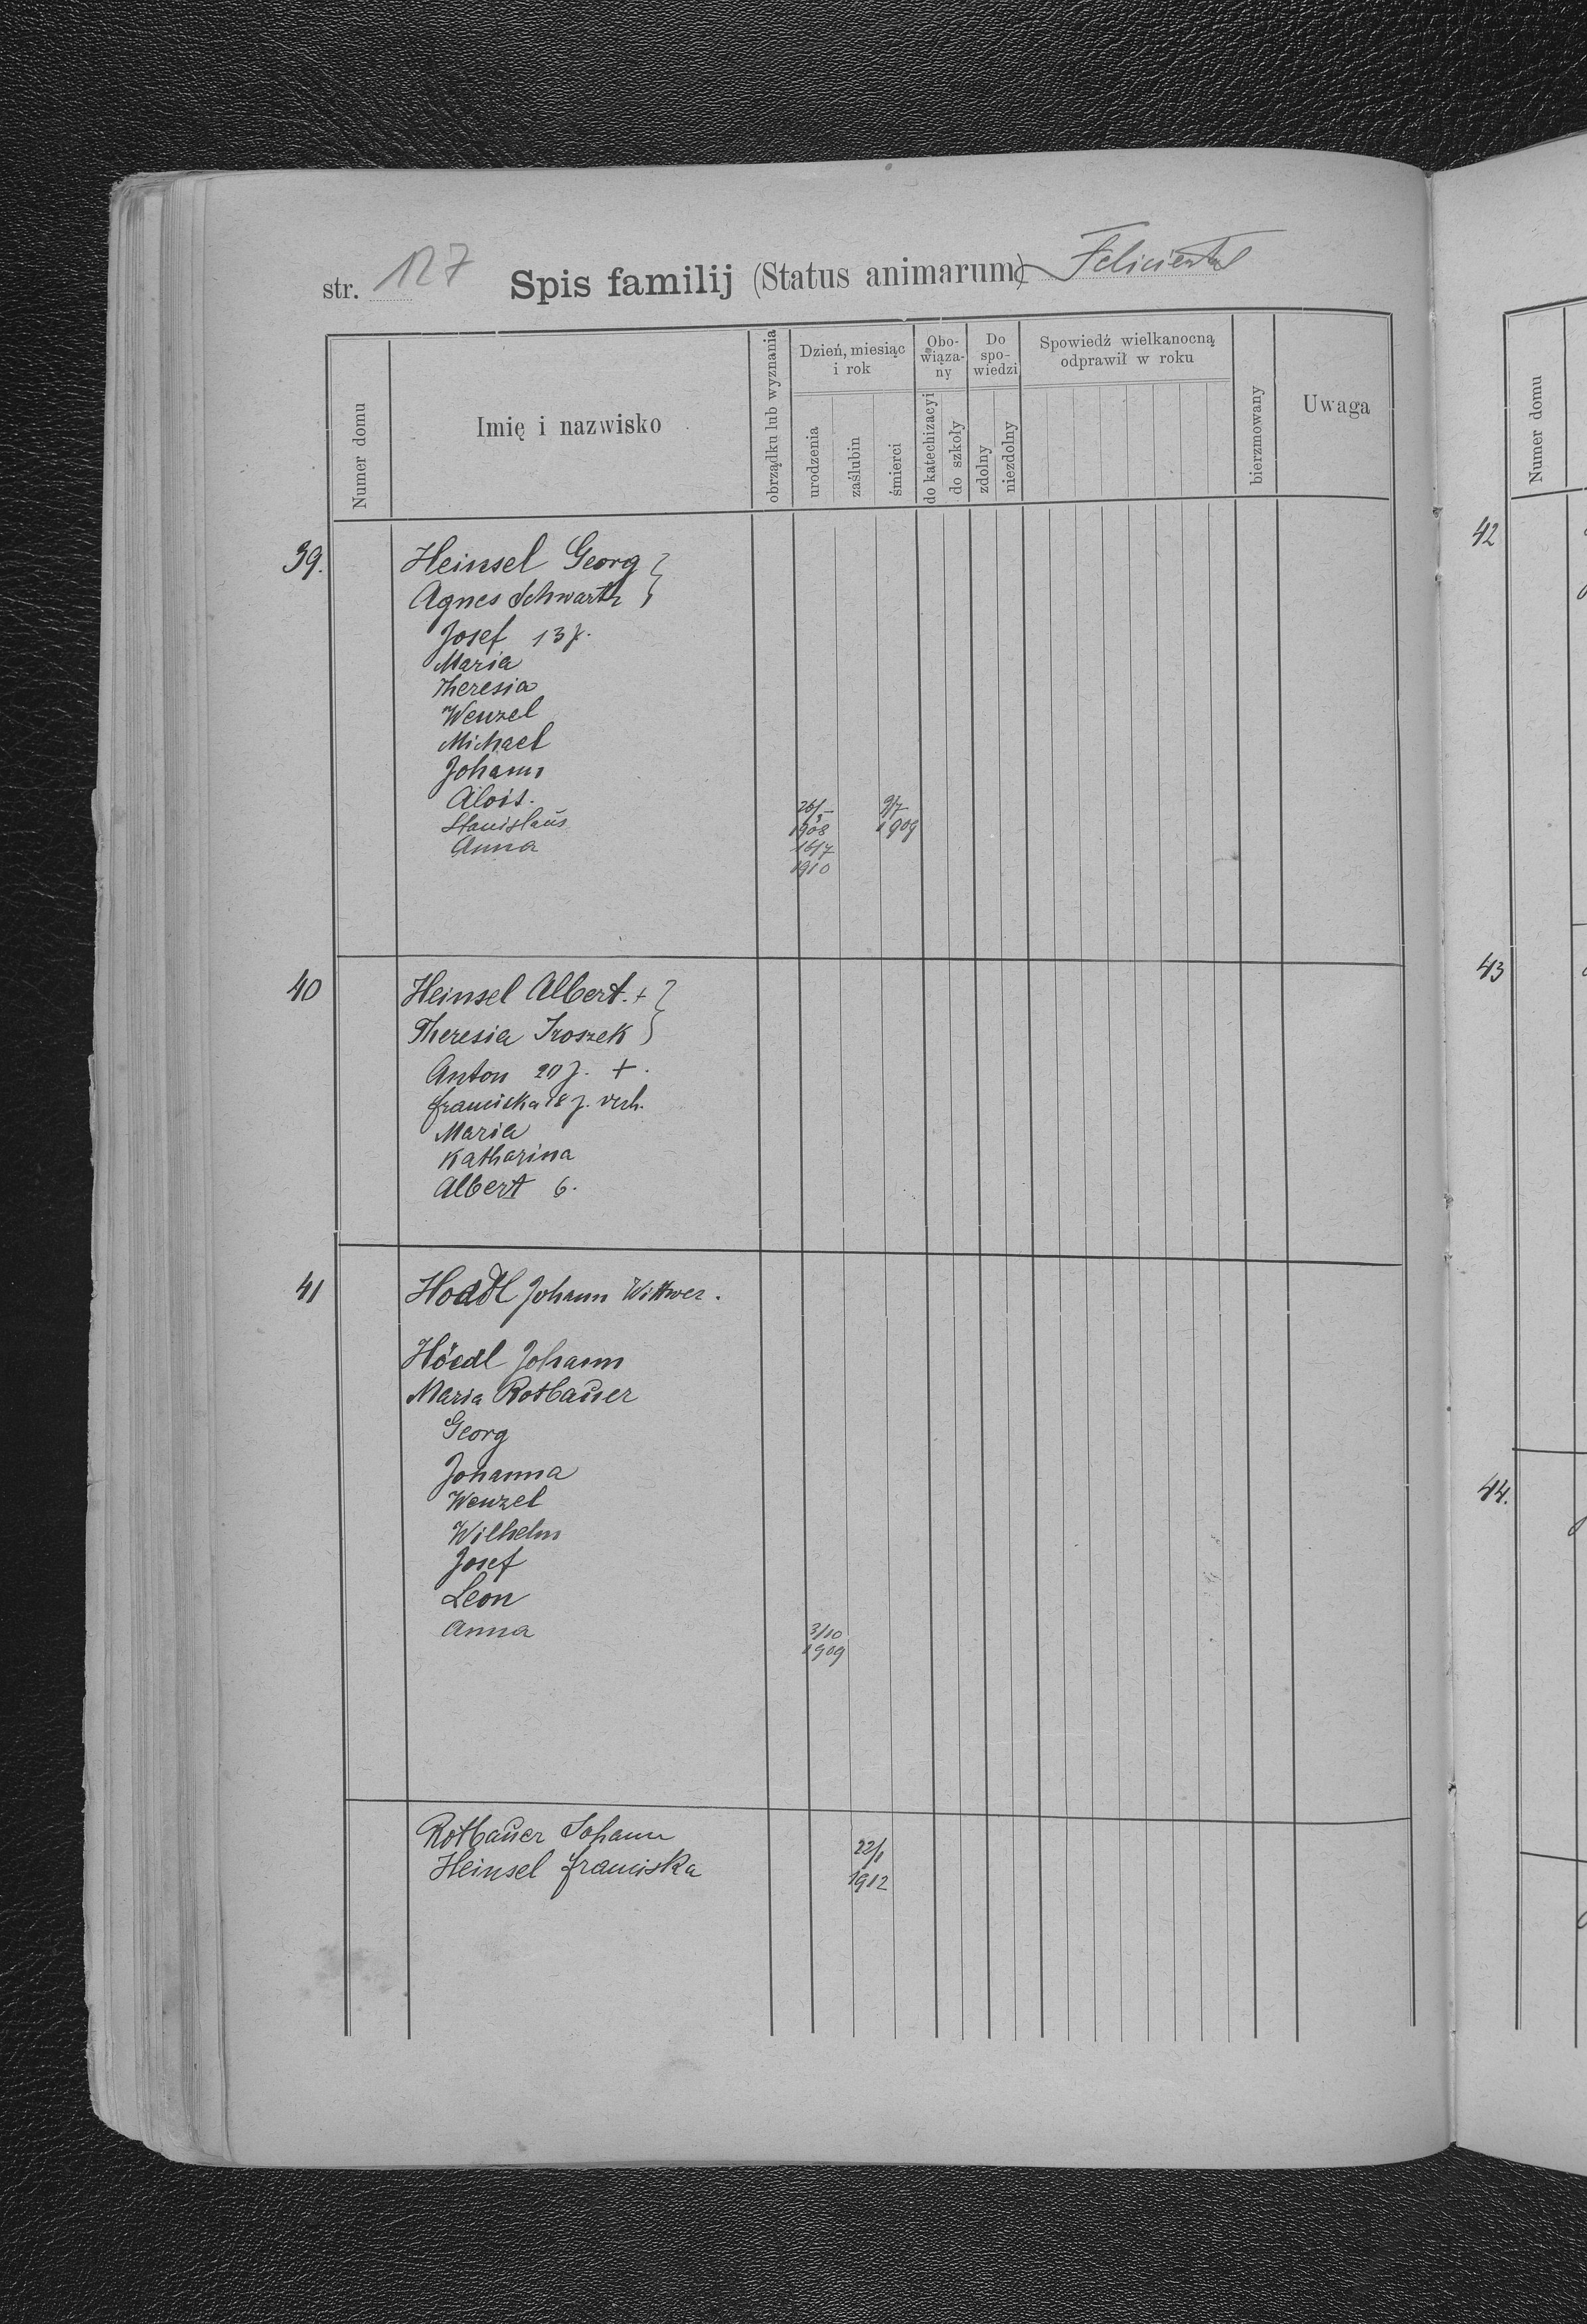 str. 127 Spis familij (Status animarum) Felicienthal
Numer domu
Imię i nazwisko
obrządku lub wyznania
Dzień, miesiąc i rok
urodzenia
zaślubin
śmierci
Obo-wiąza-ny
do katechizacyi
do szkoły
Do spo-wiedzi
zdolny
niezdolny
Spowiedź wielkanocną odprawił w roku
bierzmowany
Uwaga
Numer domu
39. Heinsel Georg
Agnes Schwartz
Josef 13 J.
Maria
Theresia
Wenzel
Michael
Johann
Alois.
Stanislaus 1908 9/7 1909
Anna 16/7 1910
40 Heinsel Albert. +
Theresia Iroszek
Anton 20 J. +.
Franciska 18 J. verh.
Maria
Katharina
Albert 6.
41 Hodl Johann Wittwer.
Höedl Johann
Maria Rotbauer
Georg
Johanna
Wenzel
Wilhelm
Josef
Leon
Anna 3/10 1909
Rotbauer Johann 22/1
Heinsel Franciska 1912
42
43
44.